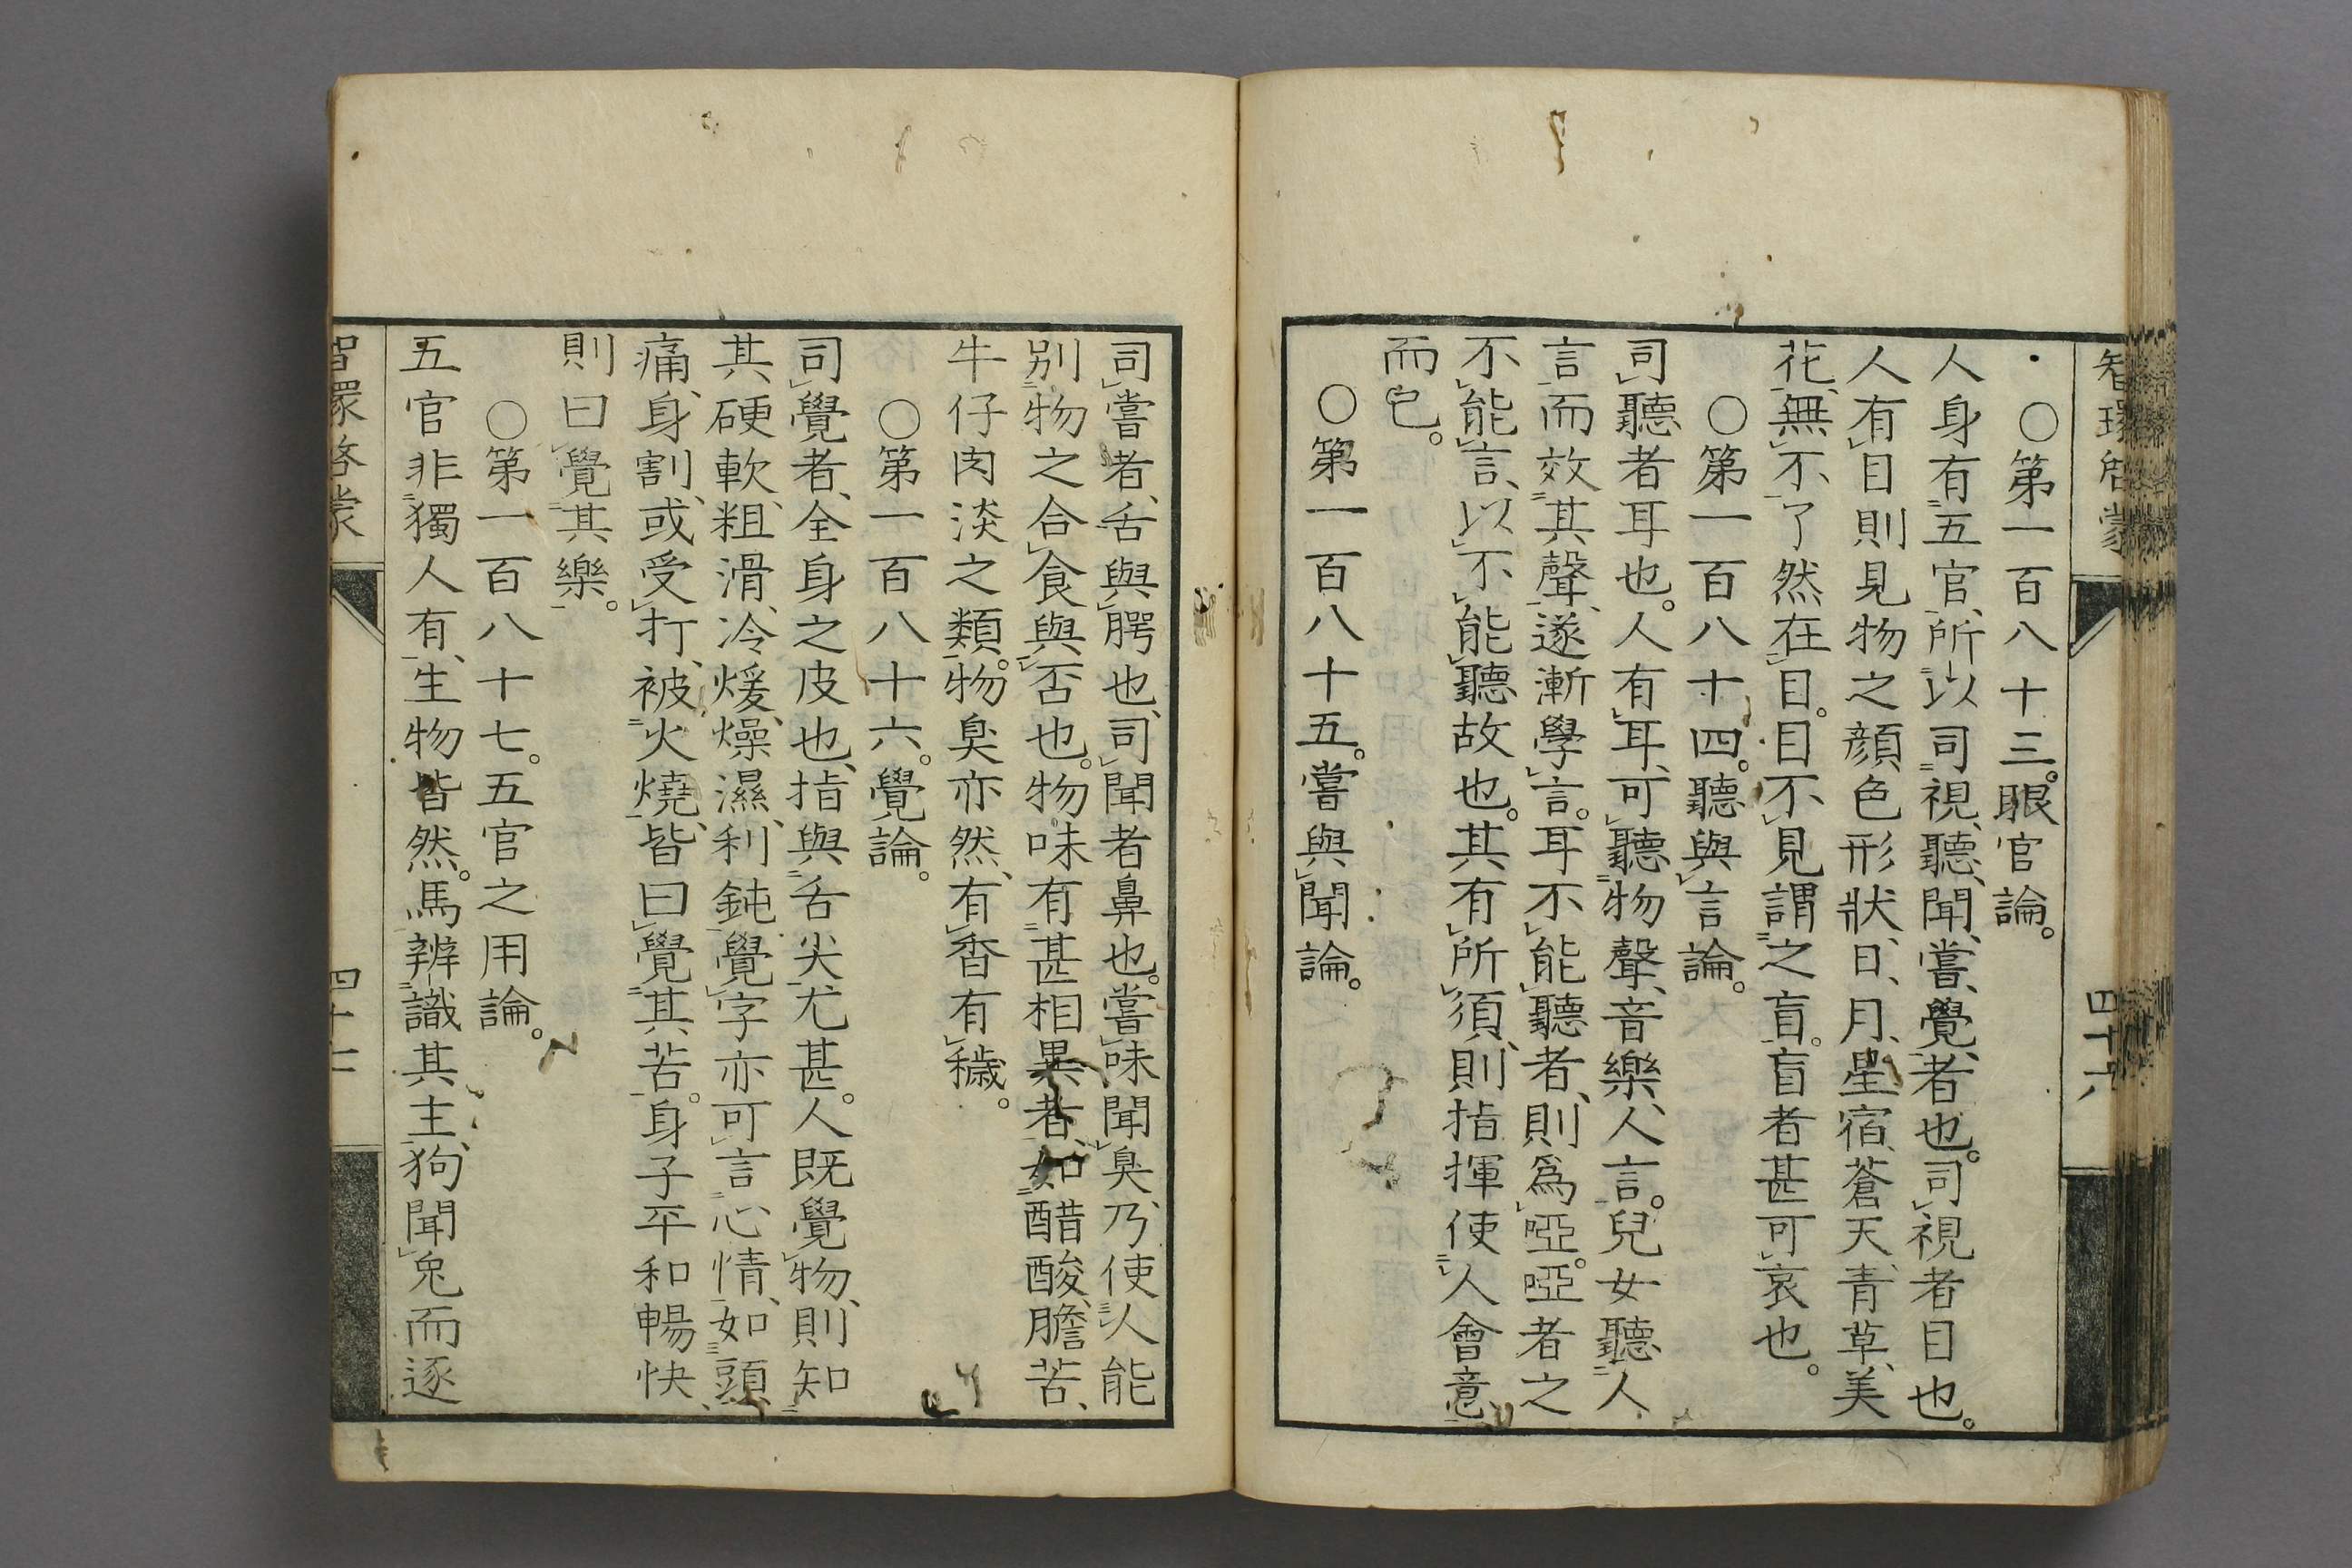 智環啓蒙
四十六
○第一百八十三。眼官論。
人身有五官、所以司視、聽、聞、嘗、覺、者也。司視者目也。
人有目則見物之顔色形狀、日、月、星宿、蒼天、青草、美
花、無不了然在目。目不見謂之盲。盲者甚可哀也。
○第一百八十四。聽與言論。
司聽者耳也。人有耳、可聽物聲、音樂、人言。兒女聽人
言而效其聲、遂漸學言。耳不能聽者、則爲啞。啞者之
不能言、以不能聽故也。其有所須、則指揮使人會意、
而已。
○第一百八十五。嘗與聞論。
司嘗者、舌與腭也、司聞者鼻也。嘗味聞臭、乃使人能
別物之合食與否也。物味有甚相異者、如醋酸、膽苦、
牛仔肉淡之類。物臭亦然、有香有穢。
○第一百八十六。覺論。
司覺者、全身之皮也、指與舌尖尤甚。人既覺物、則知
其硬軟、粗滑、冷煖、燥濕、利鈍。覺字亦可言心情、如頭
痛、身割、或受打、被火燒、皆曰覺其苦。身子平和暢快、
則曰覺其樂。
○第一百八十七。五官之用論。
五官非獨人有、生物皆然。馬辨識其主、狗聞兔而逐
智環啓蒙
四十七